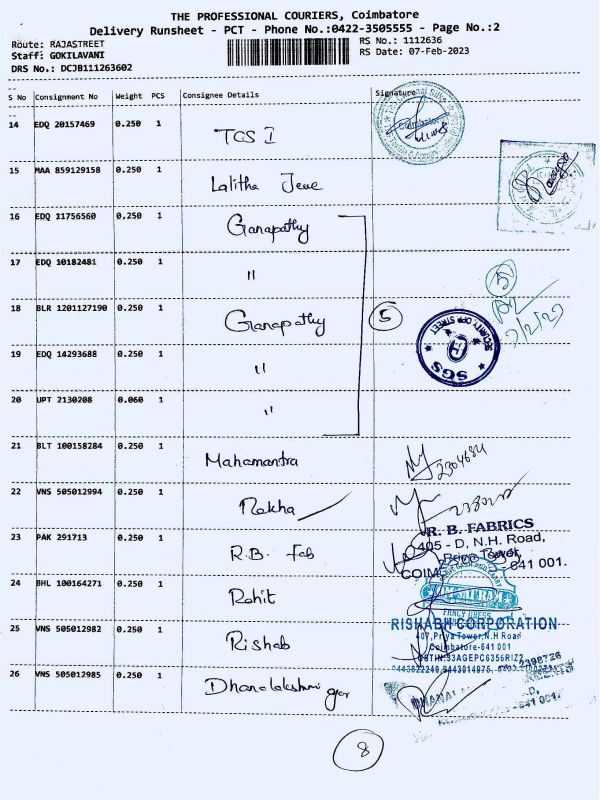 THE PROFESSIONAL COURIERS, Coimbatore
Delivery Runsheet - PCT - Phone No.:0422-3505555 - Page No.:2
Route: RAJASTREET
Staff: GOKILAVANI
DRS No.: DCJB111263602
RS No.: 1112636
RS Date: 07-Feb-2023
S No Consignment No Weight PCS Consignee Details Signature
14 EDQ 20157469 0.250 1 TCS I
15 MAA 859129158 0.250 1 Lalitha Jewe
16 EDQ 11756560 0.250 1 Ganapathy
17 EDQ 10182481 0.250 1 "
18 BLR 1201127190 0.250 1 Ganapathy 5
19 EDQ 14293688 0.250 1 "
20 UPT 2130208 0.060 1 "
SECURITY OPP STREET
SGS
21 BLT 100158284 0.250 1 Mahamantra
2304684
22 VNS 505012994 0.250 1 Rekha
23 PAK 291713 0.250 1 R.B. Fab
R. B. FABRICS
405 - D, N.H. Road,
Tower,
641 001.
24 BHL 100164271 0.250 1 Rohit
FANCY DRESS
25 VNS 505012982 0.250 1 Rishab
RISHABH CORPORATION
407, Priya Tower, N.H Road
Coimbatore-641 001
GSTIN:33AGEPC6356RIZ2
26 VNS 505012985 0.250 1 Dhanalakshmi
8